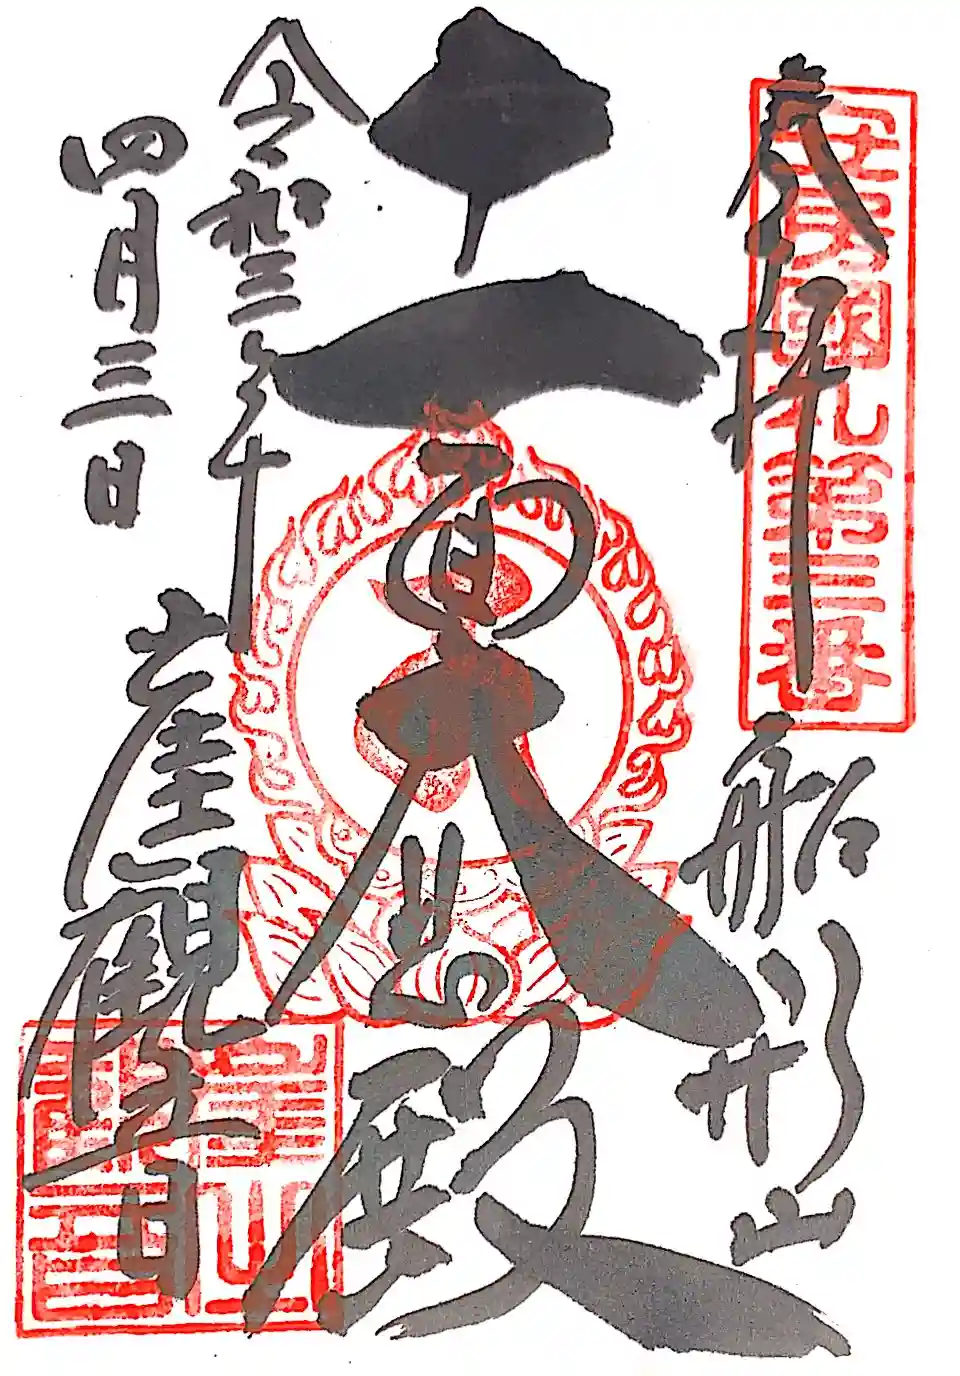 奉拝
安房国札第三番
船形山
十一面大悲殿
令和三年
四月三日
崖観音
崖観音